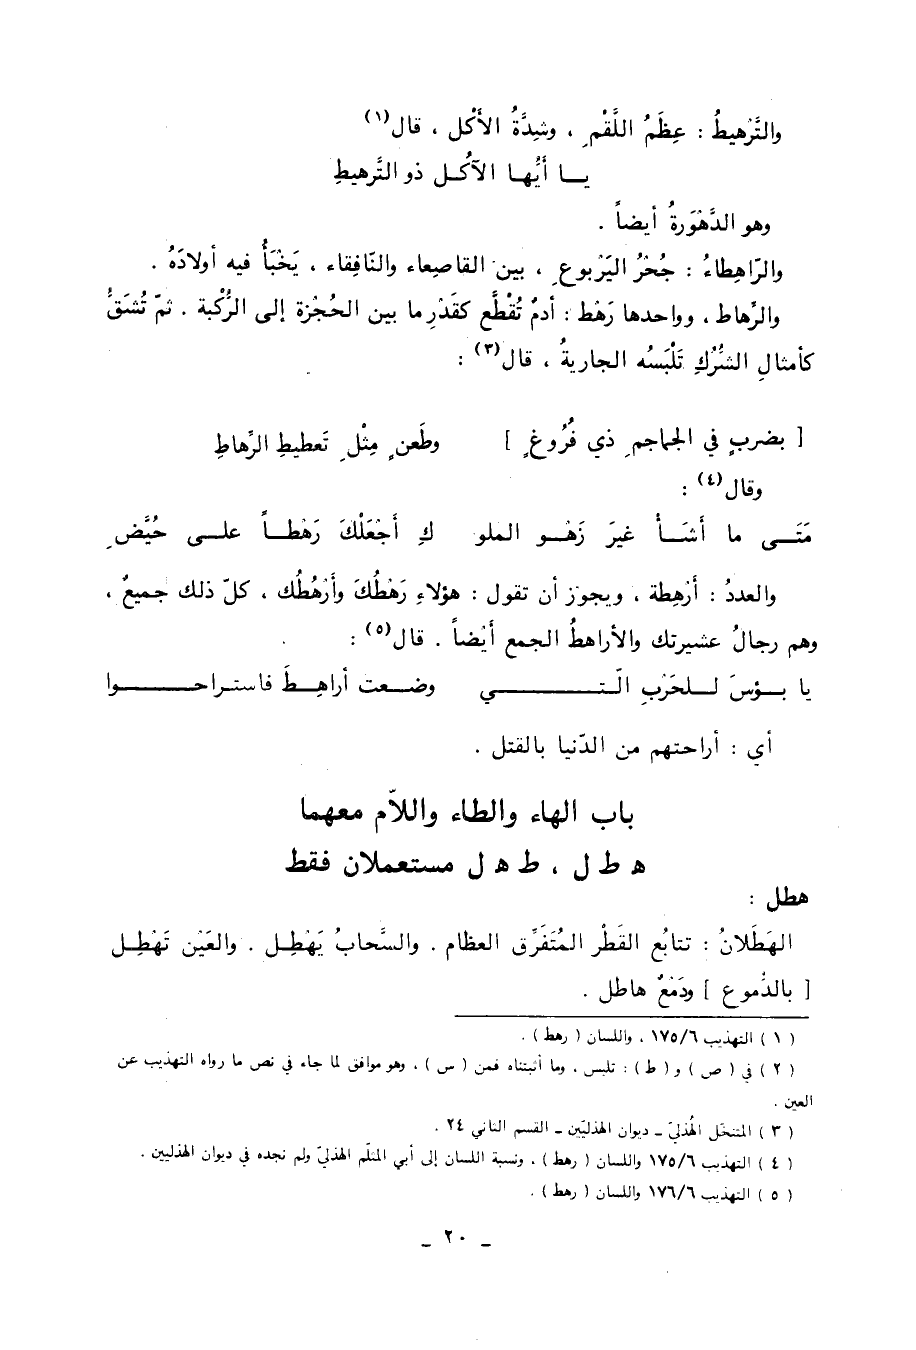 والتَّرْهيطُ : عِظَمُ اللَّقْمِ ، وشِدَّةُ الأَكْل ، قال(١)
يــا أيُّهــا الآكُــل ذو التَّرهيطِ
وهو الدَّهْوَرةُ أيضاً .
والرّاهِطاءُ : جُحْرُ اليَرْبوعِ ، بين القاصِعاء والنّافِقاء ، يَخْبَأُ فيه أولادَهُ .
والرِّهاط ، وواحدها رَهْط : أدمٌ تُقْطَّع كقَدْرِ ما بين الحُجْزة إلى الرُّكْبة . ثمّ تُشَقُّ
كأمثالِ الشُّرُكِ تَلْبَسُه الجاريةُ ، قال(٣) :
[ بضربٍ في الجماجمِ ذي فُرُوغٍ ] وطَعنٍ مِثْلِ تَعطيطِ الرِّهاطِ
وقال(٤) :
مَتَــى ما أشَــأْ غيرَ زَهْــو الملو كِ أَجْعَلْكَ رَهْطــاً علــى حُيَّضِ
والعددُ : أرْهِطة ، ويجوز أن تقول : هؤلاءِ رَهْطُكَ وأَرْهُطُك ، كلّ ذلك جميعٌ ،
وهم رجالُ عشيرتك والأراهطُ الجمع أيْضاً . قال(٥) :
يا بــؤسَ لــلحَرْبِ الّتــــــي وضــعت أراهِــطَ فاستراحــــــوا
أي : أراحتهم من الدّنيا بالقتل .
باب الهاء والطاء واللاّم معهما
ه ط ل ، ط ه ل مستعملان فقط
هطل :
الهَطَلانُ : تتابُع القَطْر المُتَفَرِّق العظام . والسَّحابُ يَهْطِــل . والعَيْن تَهْطِــل
[ بالدُّموع ] ودَمْعٌ هاطل .
( ١ ) التهذيب ١٧٥/٦ ، واللسان ( رهط ) .
( ٢ ) في ( ص ) و ( ط ) : تلبس ، وما أثبتناه فمن ( س ) ، وهو موافق لما جاء في نص ما رواه التهذيب عن
العين .
( ٣ ) المتنخّل الهُذليّ ـ ديوان الهذليّين ـ القسم الثاني ٢٤ .
( ٤ ) التهذيب ١٧٥/٦ واللسان ( رهط ) ، ونسبة اللسان إلى أبي المثلّم الهذليّ ولم نجده في ديوان الهذليين .
( ٥ ) التهذيب ١٧٦/٦ واللسان ( رهط ) .
ـ ٢٠ ـ